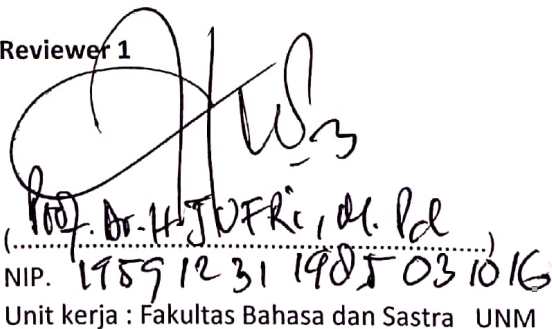 Reviewer 1
(Prof. Dr. H. JUFRi, M. Pd)
NIP. 19591231 198503 1016
Unit kerja : Fakultas Bahasa dan Sastra UNM